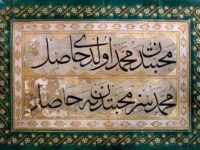 محبتدن محمد اولدی حاصل
محمدسز محبتدن نه حاصل